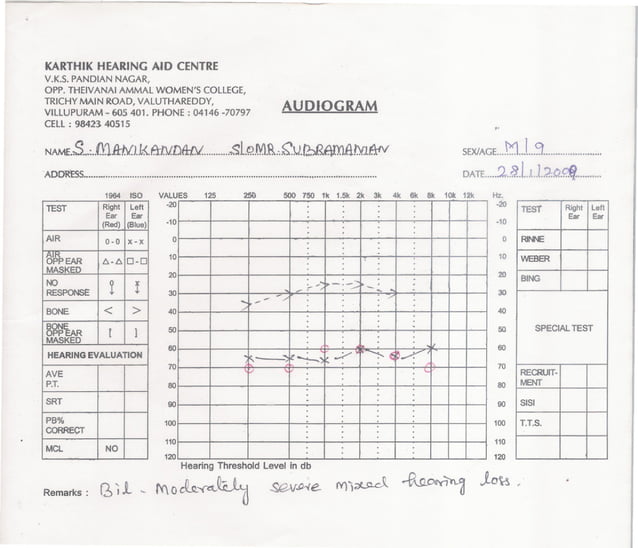 KARTHIK HEARING AID CENTRE
V.K.S. PANDIAN NAGAR,
OPP. THEIVANAI AMMAL WOMEN'S COLLEGE,
TRICHY MAIN ROAD, VALUTHAREDDY,
VILLUPURAM - 605 401. PHONE : 04146 -70797
CELL : 98423 40515
AUDIOGRAM
NAME S. MANIKANDAN S/O MR. SUBRAMANIAN SEX/AGE M / 9
ADDRESS DATE 28/1/2009
1964 ISO VALUES 125 250 500 750 1k 1.5k 2k 3k 4k 6k 8k 10k 12k Hz.
TEST Right Ear (Red) Left Ear (Blue)
AIR 0-0 x-x
AIR OPP EAR MASKED Δ-Δ □-□
NO RESPONSE
BONE < >
BONE OPP EAR MASKED [ ]
HEARING EVALUATION
AVE P.T.
SRT
PB% CORRECT
MCL NO
-20 -20
-10 -10
0 0
10 10
20 20
30 30
40 40
50 50
60 60
70 70
80 80
90 90
100 100
110 110
120 120
TEST Right Ear Left Ear
RINNE
WEBER
BING
SPECIAL TEST
RECRUIT-MENT
SISI
T.T.S.
Hearing Threshold Level in db
Remarks : Bil - Moderately severe mixed hearing loss.